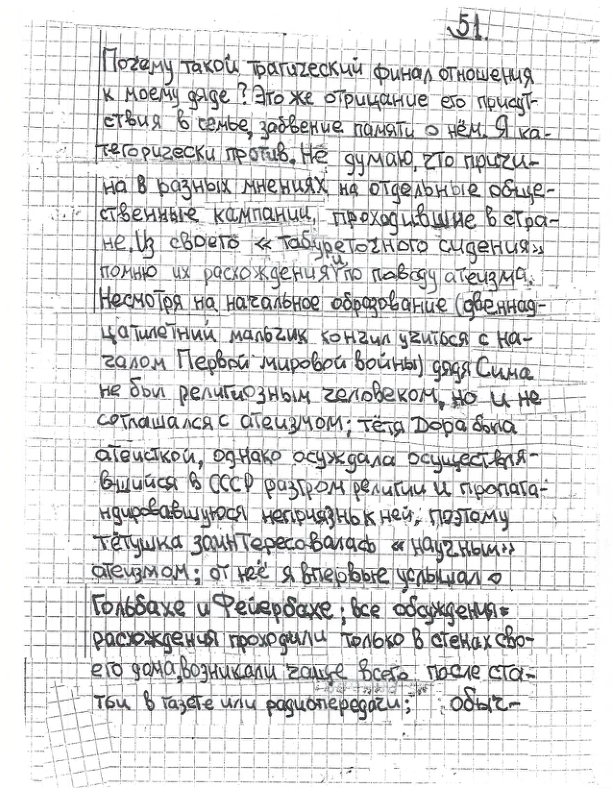 51.
Почему такой трагический финал отношения
к моему дяде? Это же отрицание его присут-
ствия в семье, забвение памяти о нём. Я ка-
тегорически против. Не думаю, что причи-
на в разных мнениях на отдельные обще-
ственные кампании, проходившие в стра-
не. Из своего « табуреточного сидения»
помню их расхождения и по поводу атеизма.
Несмотря на начальное образование (двенад-
цатилетний мальчик кончил учиться с на-
чалом Первой мировой войны) дядя Сима
не был религиозным человеком, но и не
соглашался с атеизмом; тётя Дора была
атеисткой, однако осуждала осуществля-
вшийся в СССР разгром религии и пропага-
ндировавшуюся неприязнь к ней, поэтому
тётушка заинтересовалась «научным»
атеизмом; от неё я впервые услышал о
Гольбахе и Фейербахе; все обсуждения-
расхождения проходили только в стенах сво-
его дома, возникали чаще всего после ста-
тьи в газете или радиопередачи; обыч-